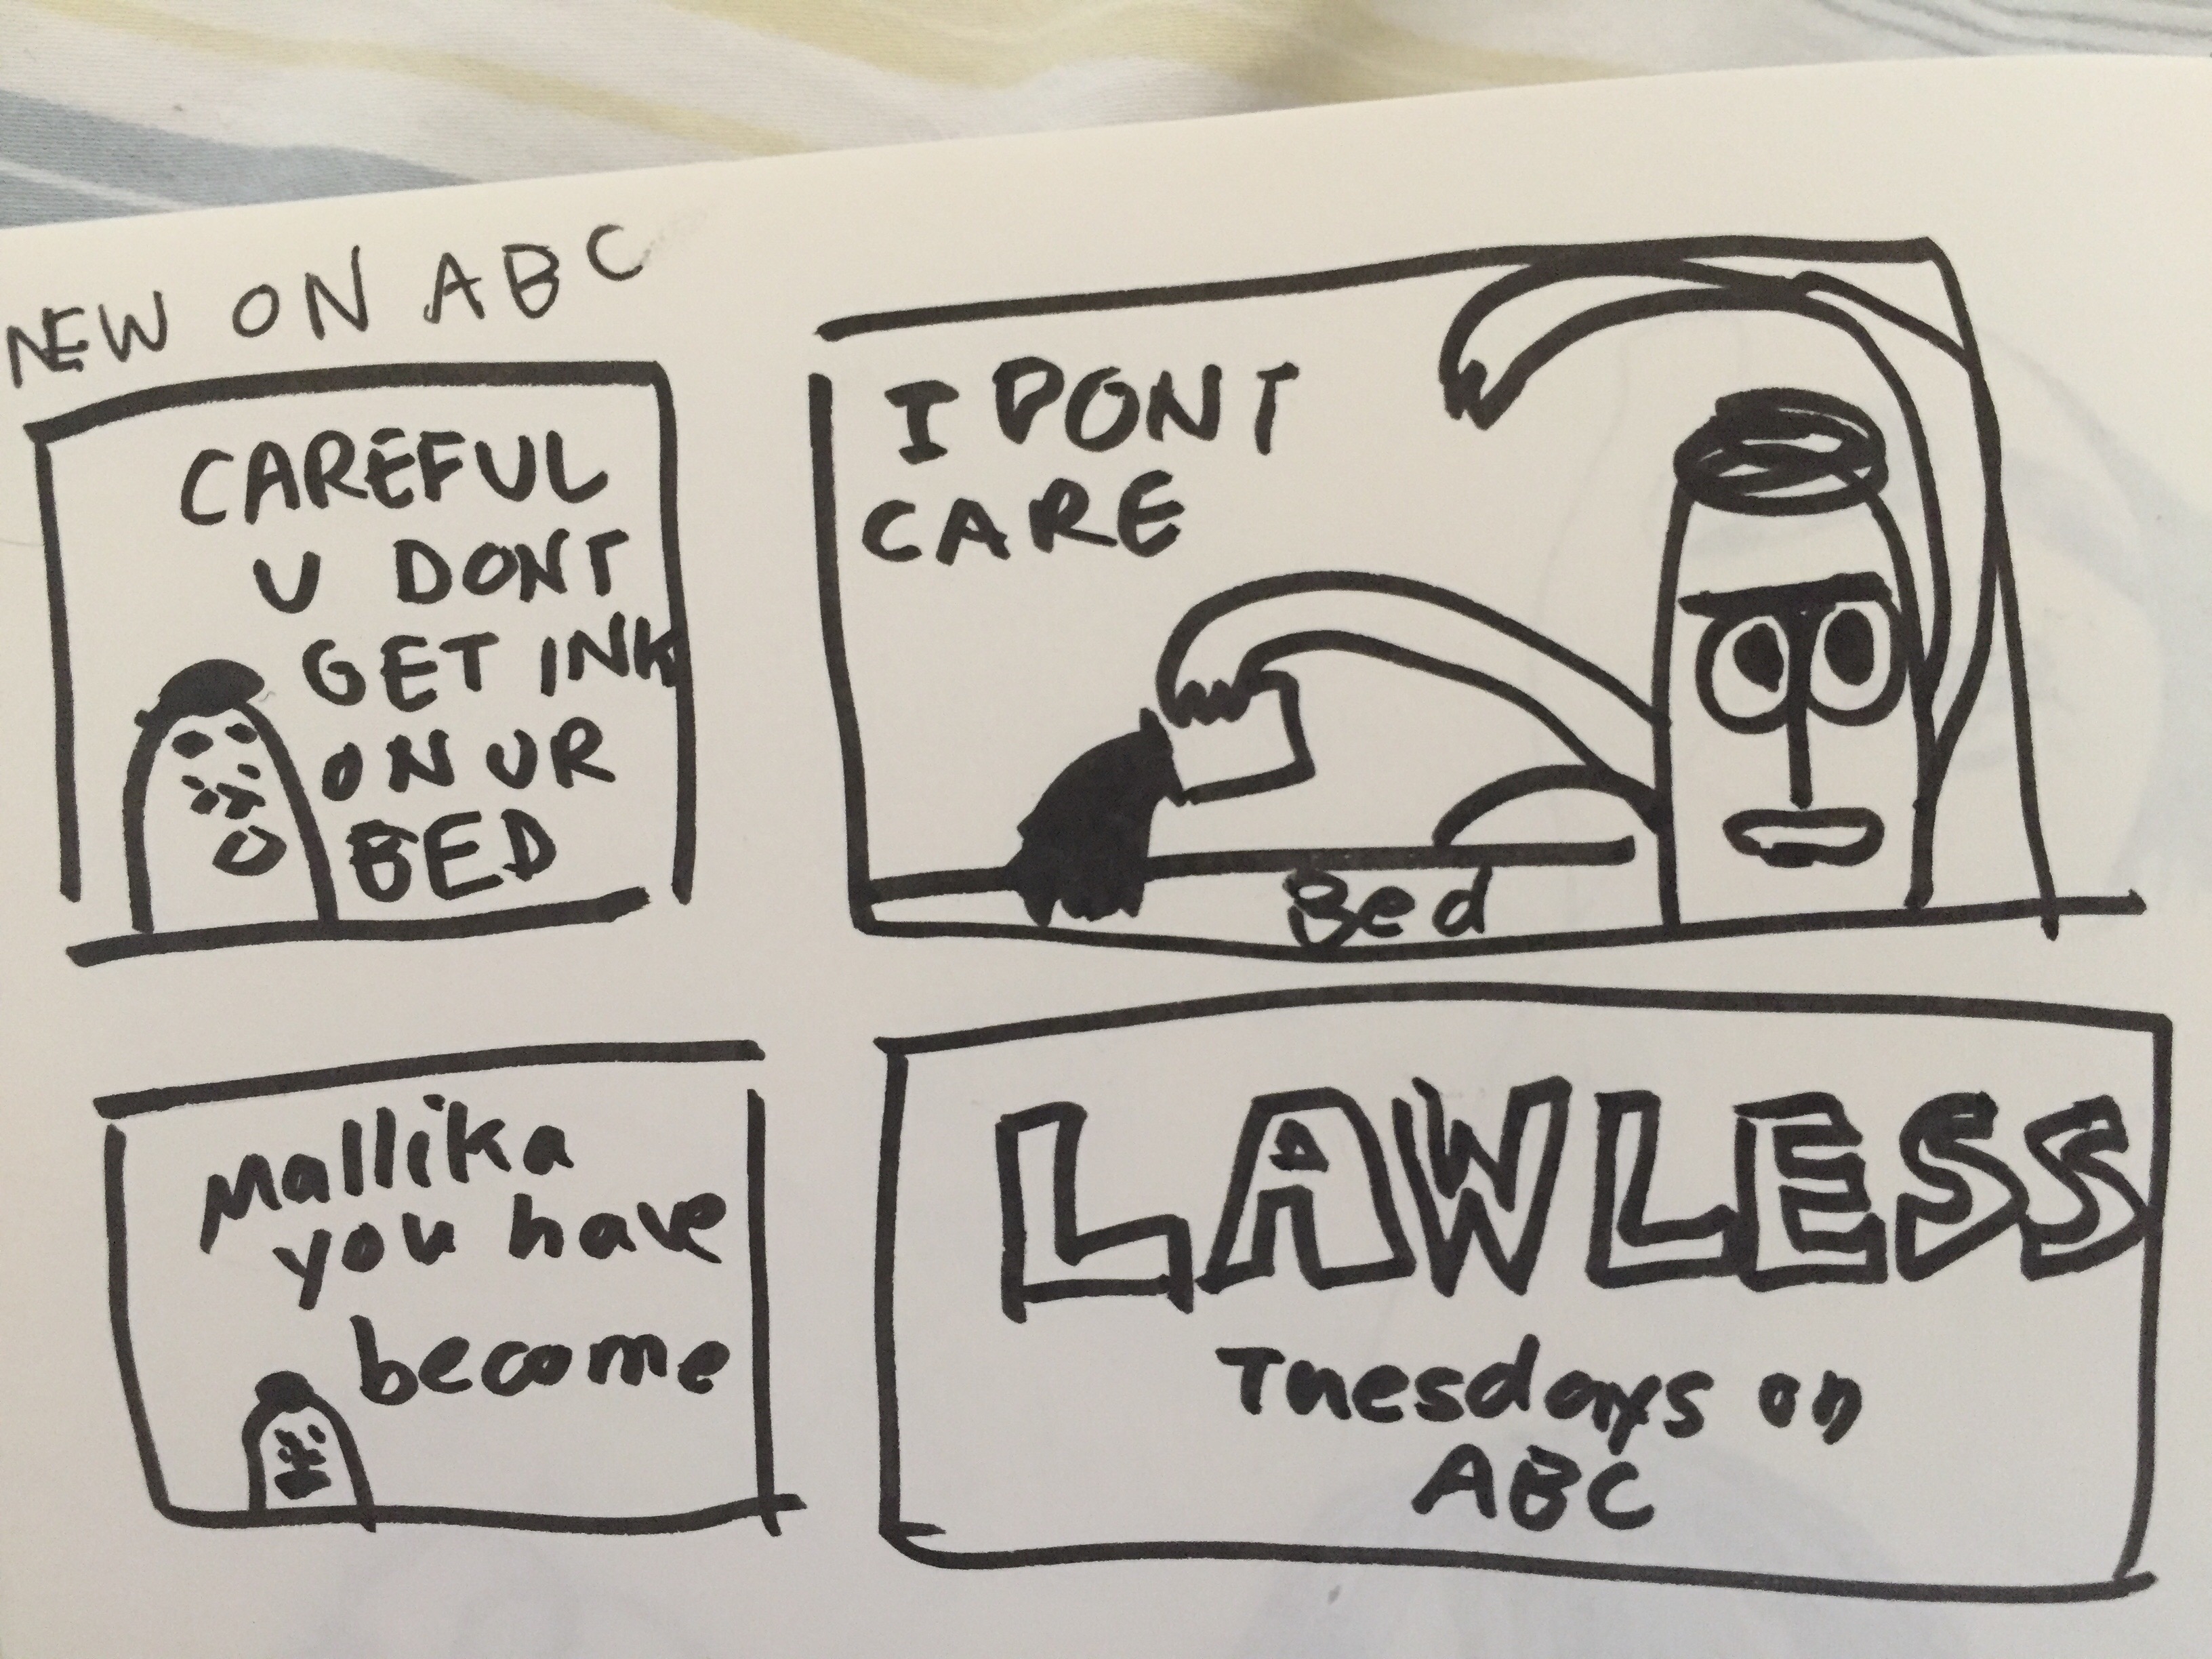 NEW ON ABC
CAREFUL
U DONT
GET INK
ON UR
BED
I DONT
CARE
Bed
Mallika
you have
become
LAWLESS
Tuesdays on
ABC